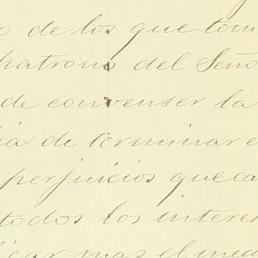 o de los que tom
patrono del Seño
de convenser la
ia de terminar e
perjuicios que ca
todos los intere
licar mas el med